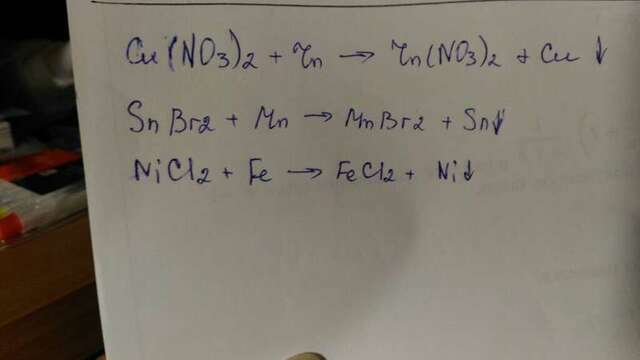 Cu(NO3)2 + Zn → Zn(NO3)2 + Cu ↓
SnBr2 + Mn → MnBr2 + Sn↓
NiCl2 + Fe → FeCl2 + Ni↓